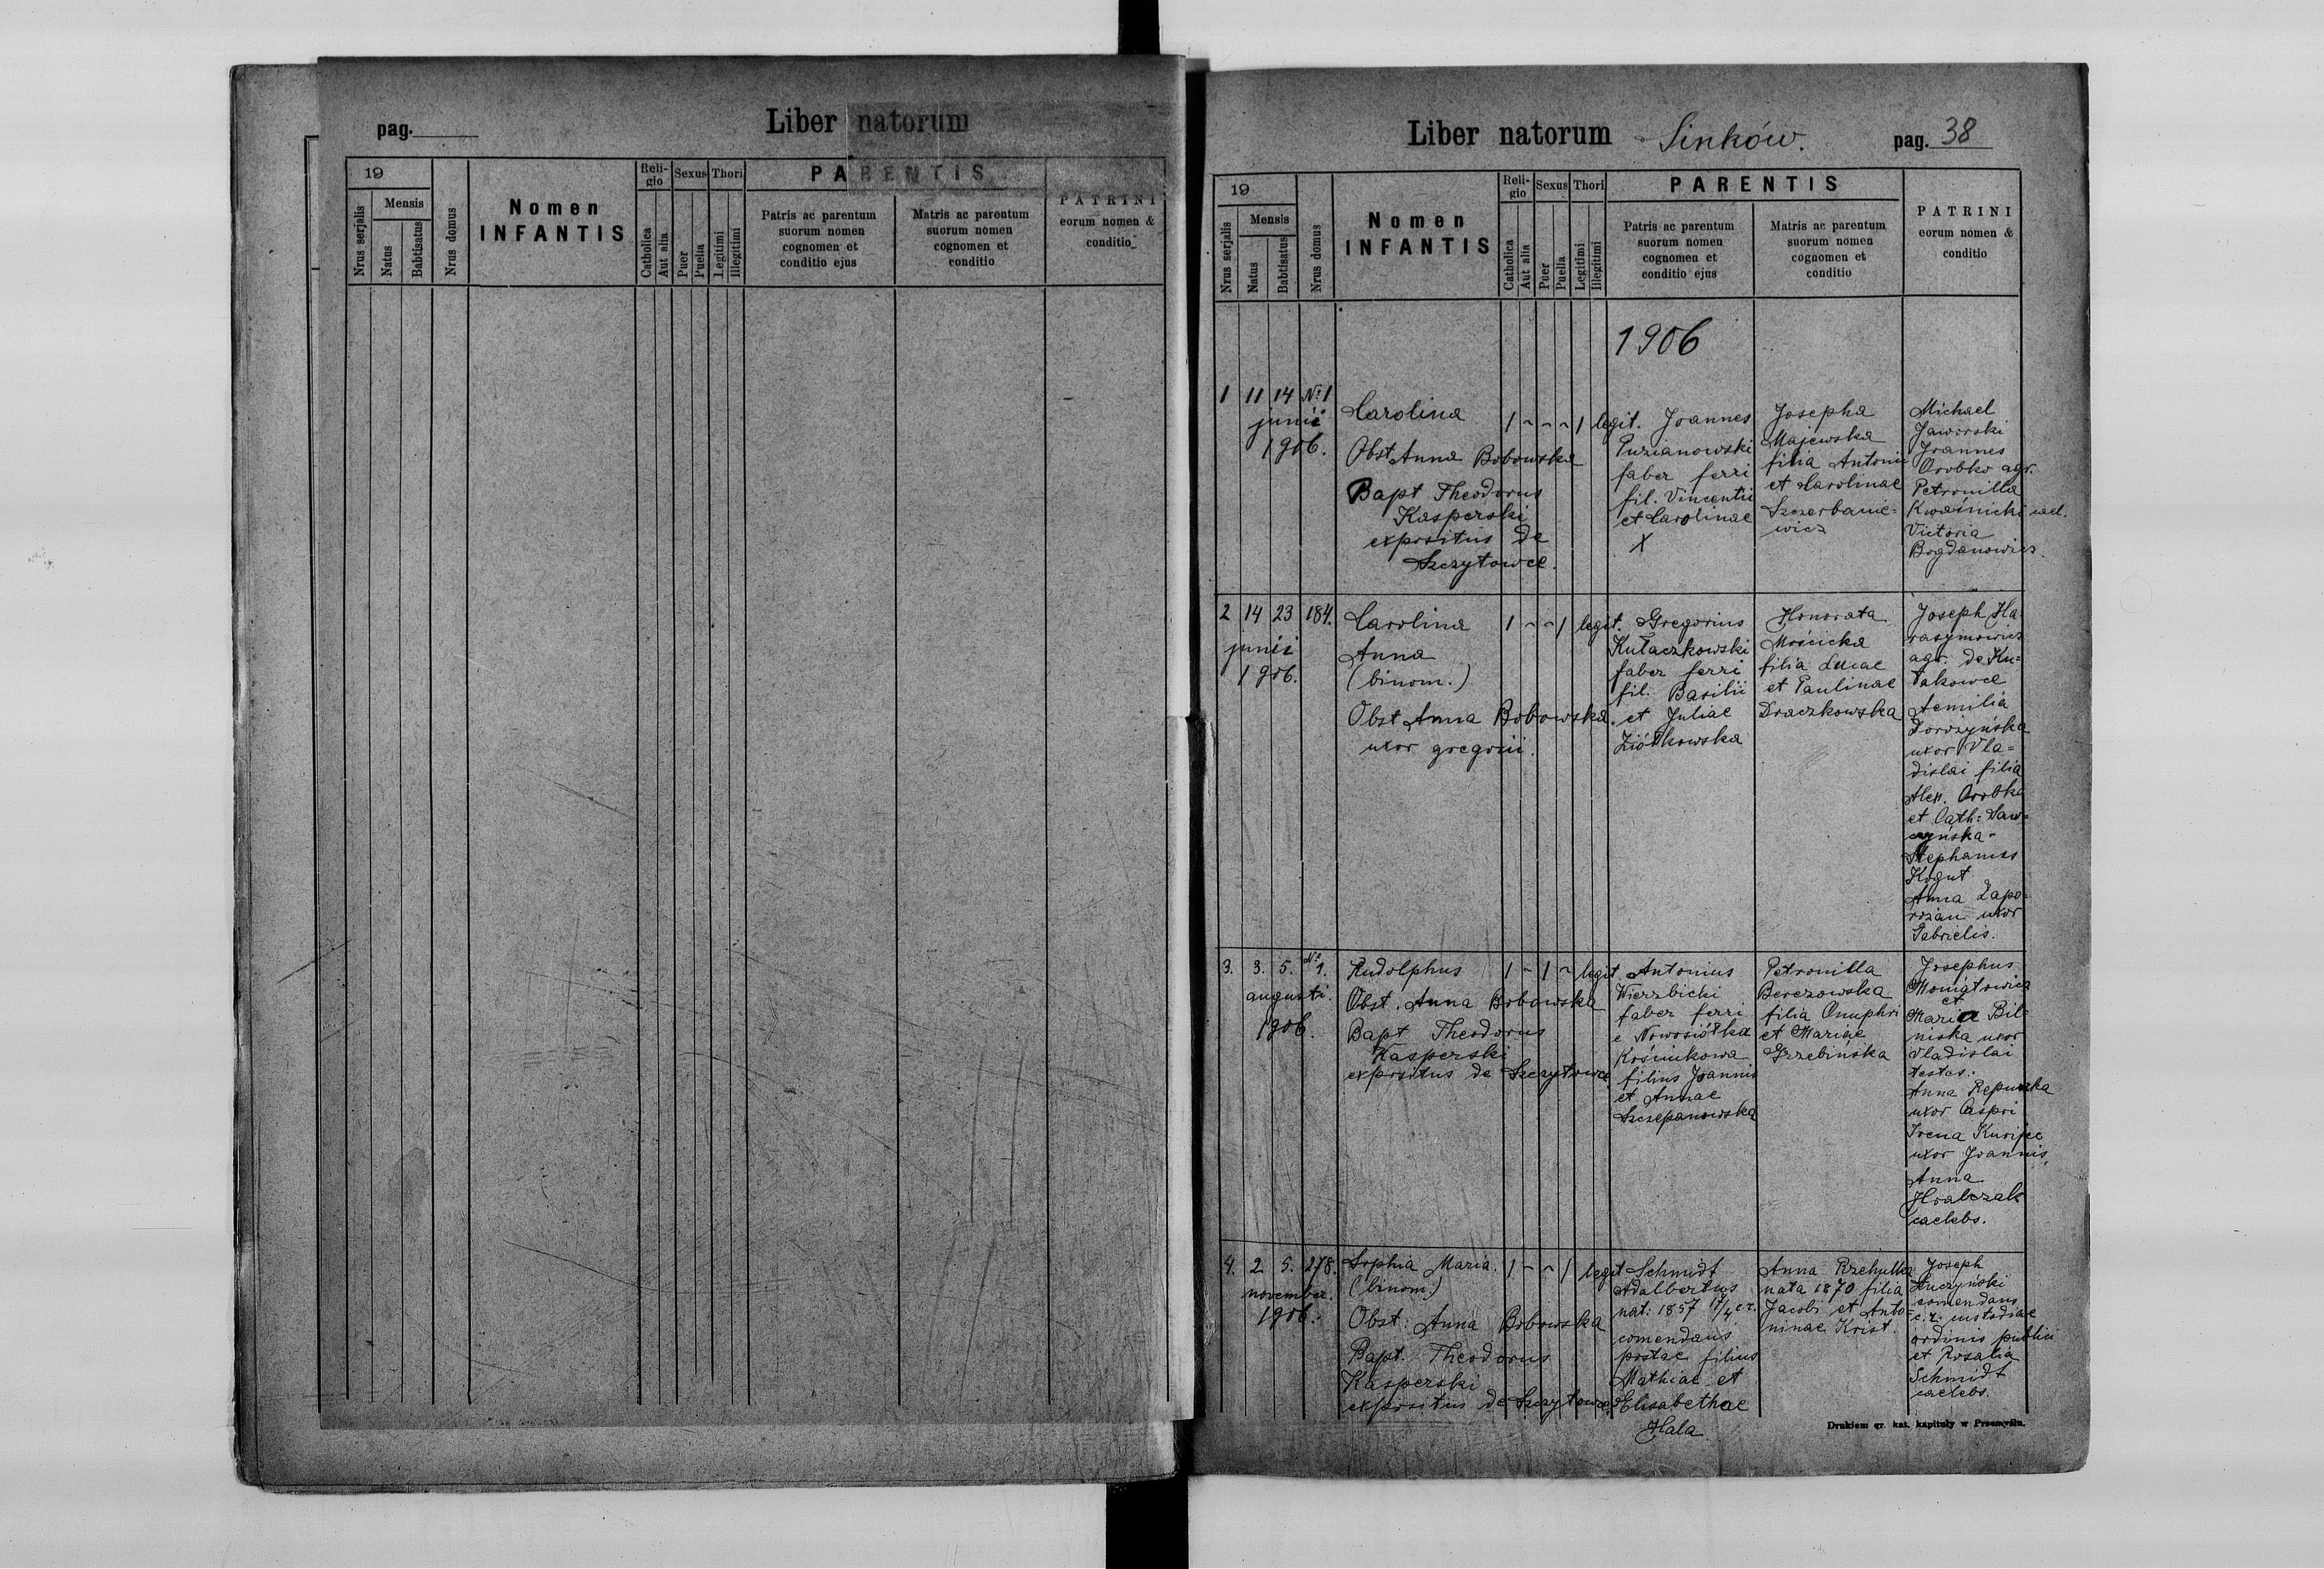 pag.
Liber natorum
19
Mensis
Nrus serjalis
Natus
Babtisatus
Nrus domus
Nomen
INFANTIS
Reli-
gio
Catholica
Aut alia
Sexus
Puer
Puella
Thori
Legitimi
Illegitimi
PARENTIS
Patris ac parentum
suorum nomen
cognomen et
conditio ejus
Matris ac parentum
suorum nomen
cognomen et
conditio
PATRINI
eorum nomen &
conditio
Liber natorum Sinków.
pag. 38
19
Mensis
Nrus serjalis
Natus
Babtisatus
Nrus domus
Nomen
INFANTIS
Reli-
gio
Catholica
Aut alia
Sexus
Puer
Puella
Thori
Legitimi
Illegitimi
PARENTIS
Patris ac parentum
suorum nomen
cognomen et
conditio ejus
Matris ac parentum
suorum nomen
cognomen et
conditio
PATRINI
eorum nomen &
conditio
1906
1 11 14 № 1
junii
1906.
Carolina
Obst Anna Bobowska
Bapt Theodorus
Kasperski
expositus de
Szczytowce.
1 - - - 1 legit.
Joannes
Puzianowski
faber ferri
fil. Vincentii
et Carolinae
X
Josepha
Majewska
filia Antonii
et Carolinae
Szczerbanie=
wicz
Michael
Jaworski
Joannes
Orobko agr.
Petronilla
Kwaśnicki
Victoria
Bogdanowicz.
2 14 23 184.
junii
1906.
Carolina
Anna
(binom.)
Obst Anna Bobowska.
uxor gregorii.
1 - - 1 legit.
Gregorius
Kułaczkowski
faber ferri
fil. Basilii
et Juliae
Ziółkowska
Honorata
Mościcka
filia Lucae
et Paulinae
Draczkowska
Joseph Ha
rasymowicz
agr. de Ku=
łakowce
Aemilia
uxor Vla=
dislai filia
Alex. Orobko
et Cath: Waw=
czyńska -
Stephanus
Kogut
Anna Zapo=
rożan uxor
Gabrielis.
3. 3. 5. № 1.
augusti.
1906.
Rudolphus
Obst. Anna Bobowska
Bapt Theodorus
Kasperski
expositus de Szczytowce
1 - 1 - legit
Antonius
Wierzbicki
faber ferri
e Nowosiółka
Kośniukowa
filius Joannis
et Annae
Szczepanowska
Petronilla
Berezowska
filia Onuphri
et Mariae
Grzebińska
Josephus
et
Maria Bil-
niska uxor
Vladislai
testes.
Anna Repuszka
uxor Caspri
Irena
uxor Joannis,
Anna
Hrabczak
caelebs.
4. 2 5. 278.
november.
1906.
Sophia Maria.
(binom.)
Obst: Anna Bobowska
Bapt. Theodorus
Kasperski
expositus de Szczytowce
1 - - 1 legit
Schmidt
Adalbertus
nat. 1857 17/4 c.r.
comendans
postae filius
Mathiae et
Elisabethae
Hala
Anna Rzehulka
nata 1870 filia
Jacobi et Anto=
ninae Krist.
Joseph
Łuczyński
comendans
c.r. custodiae
ordinis publici
et Rosalia
Schmidt
caelebs.
Drukiem gr. kat. kapituły w Przemyślu.